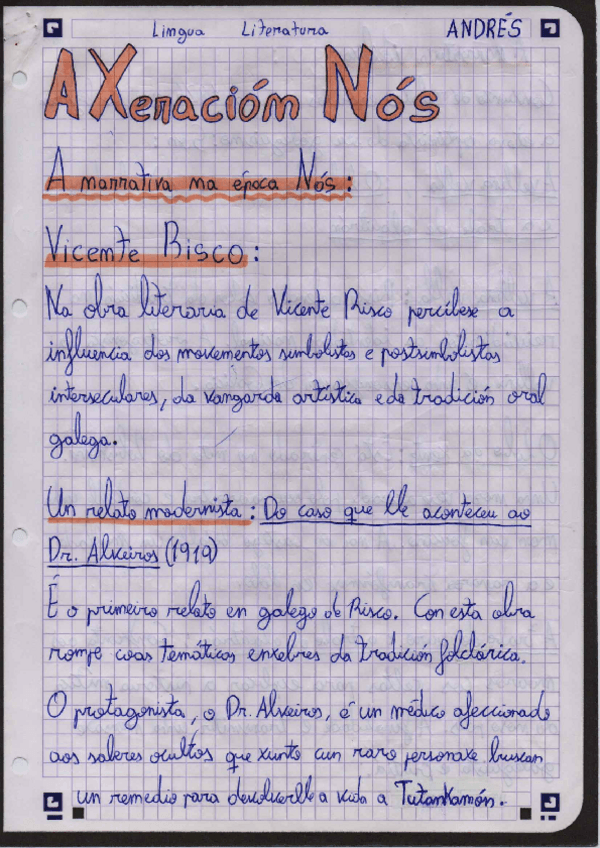 Lingua Literatura ANDRÉS
A Xeración Nós
A narrativa na época Nós:
Vicente Risco:
Na obra literaria de Vicente Risco percíbese a
influencia dos movementos simbolistas e postsimbolistas
interseculares, da vangarda artística e da tradición oral
galega.
Un relato modernista: Do caso que lle aconteceu ao
Dr. Alveiros (1919)
É o primeiro relato en galego de Risco. Con esta obra
rompe coas temáticas enxebres da tradición folclórica.
O protagonista, o Dr. Alveiros, é un médico afeccionado
aos saberes ocultos que xunto cun raro personaxe buscan
un remedio para devolverlle a vida a Tutankamón.